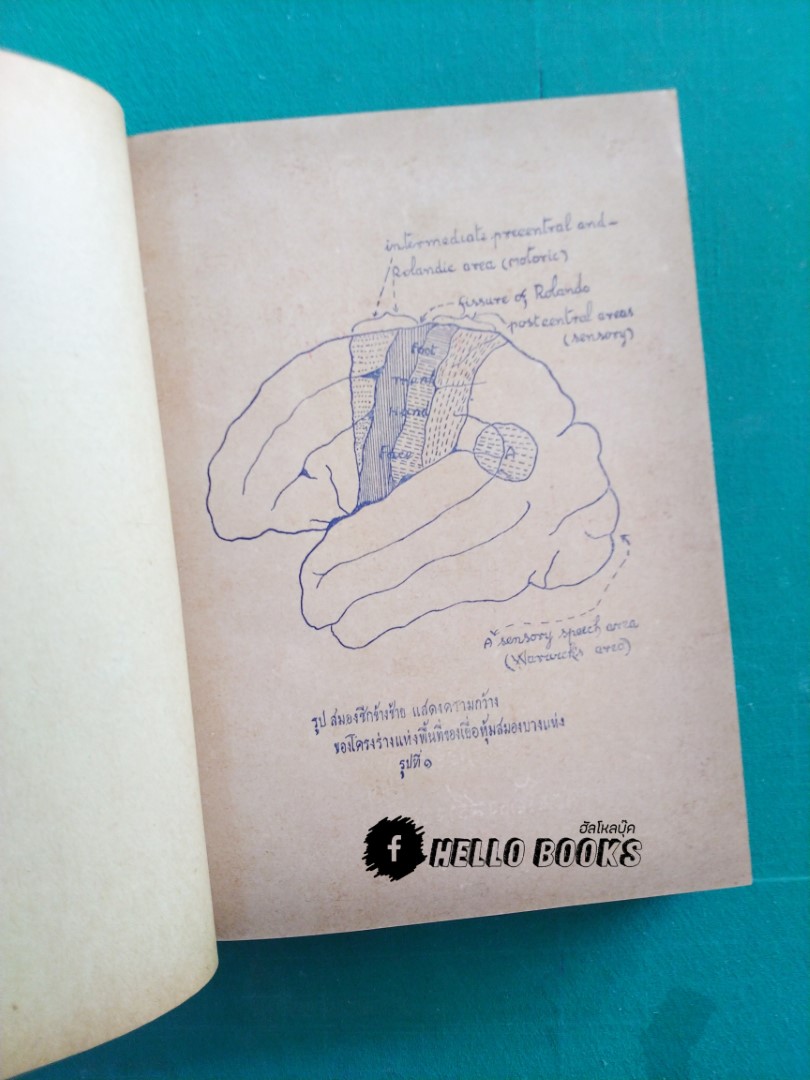 intermediate precentral and-
Rolandic area (Motoric)
fissure of Rolando
postcentral areas
(sensory)
Foot
Hand
Face
A
A = sensory speech area
(Warwick's area)
รูป สมองซีกข้างซ้าย แสดงความกว้าง
ของโครงร่างแห่งพื้นที่ของเยื่อหุ้มสมองบางแห่ง
รูปที่ ๑
ฮัลโหลบุ๊ค
f HELLO BOOKS